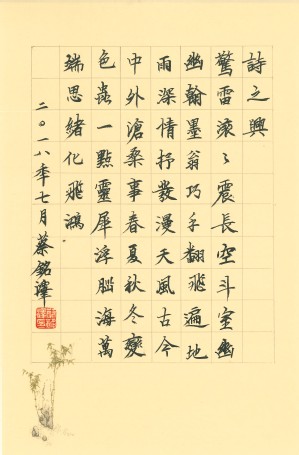 詩之興
驚雷滾〻震長空斗室幽
幽翰墨翁巧手翻飛遍地
雨深情抒發漫天風古今
中外滄桑事春夏秋冬變
色蟲一點靈犀浮腦海萬
端思緒化飛鴻
二〇一八年七月蔡銘澤